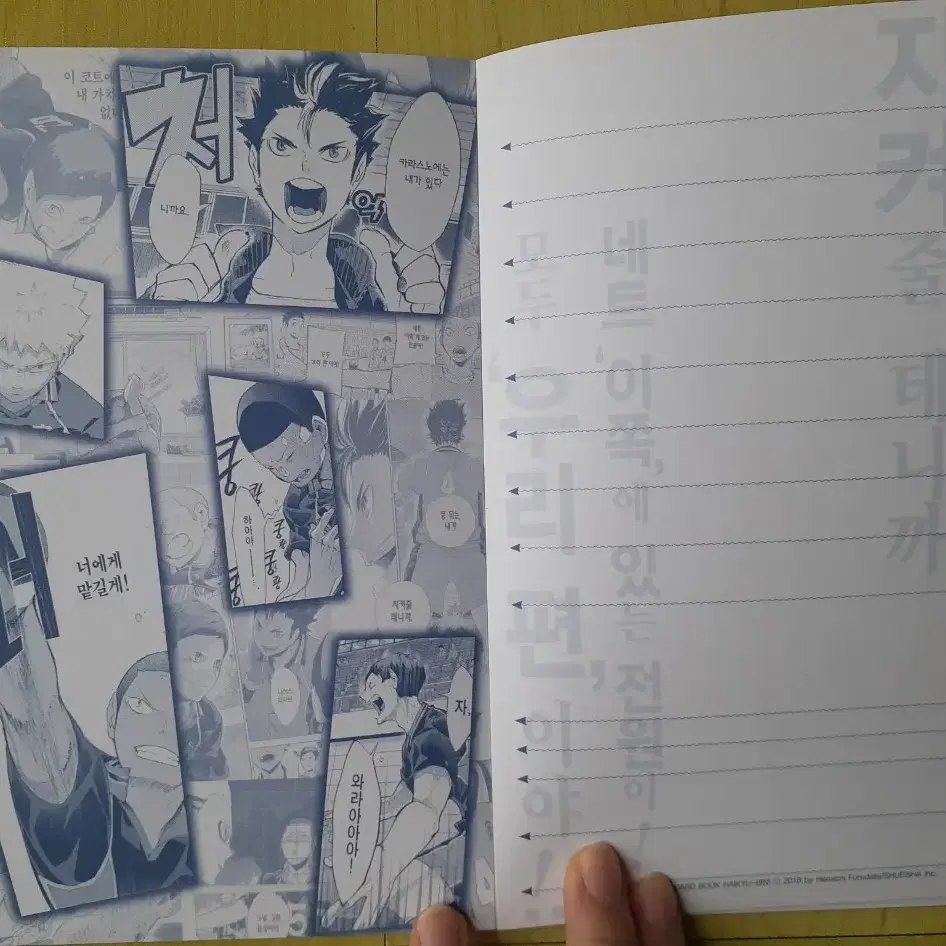 이 코트에
내 가치
없
처
억
카라스노에는
내가 있다
니까요
쿵
쾅
하아아
쿵
쾅
쿵
쾅
쿵
쾅
너에게
맡길게!
자,
와라아아아!
지켜줄 테니까
네트 '이쪽'에 있는 전원이
모두 '우리 편'이야!!
BOOK HAIKYU-!!
ⓒ 2018 by Haruichi Furudate/SHUEISHA Inc.